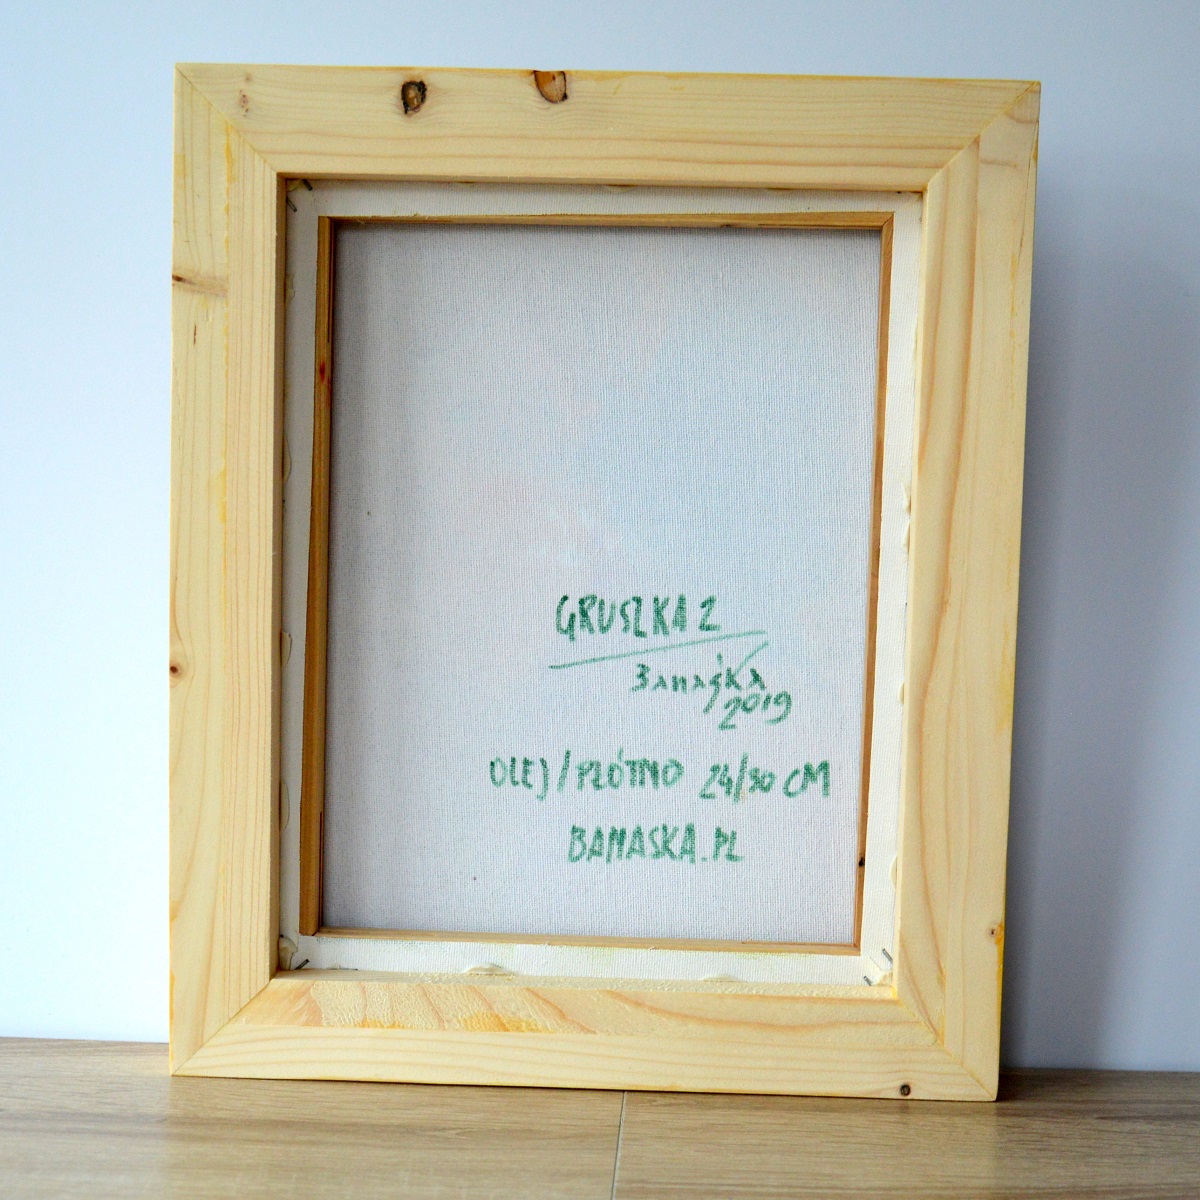 GRUSZKA 2
Banaśka
2019
OLEJ/PŁÓTNO 24/30 CM
BANASKA.PL